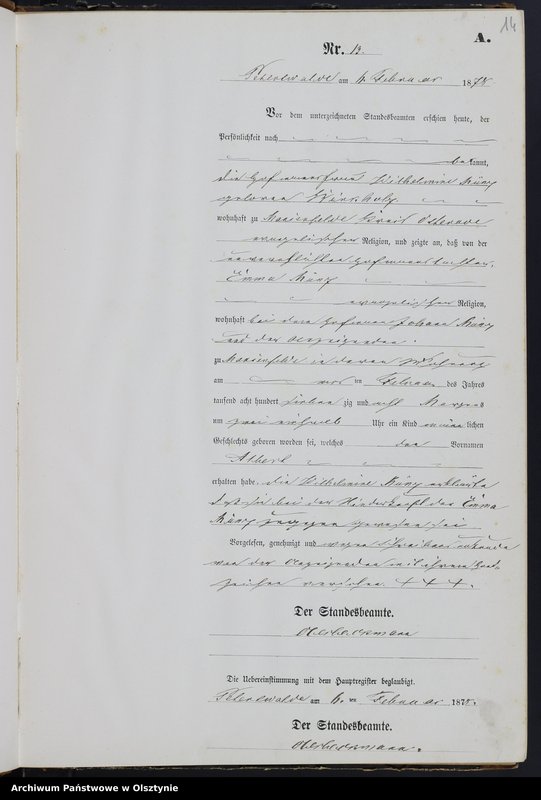 14
A.
Nr. 13.
Peterswalde am 6. Februar 1878
Vor dem unterzeichneten Standesbeamten erschien heute, der
Persönlichkeit nach
bekannt,
die Hofmannsfrau Wilhelmine Münz
geborene
wohnhaft zu Marienfelde Kreis Osterode
evangelischer Religion, und zeigte an, daß von der
unverehelichten
Emma Münz
evangelischer Religion,
wohnhaft bei dem Hofmann Johann Münz
und der Anzeigenden
zu Marienfelde in deren Wohnung
am ten Februar des Jahres
tausend acht hundert sieben zig und acht Morgens
um zwei einhalb Uhr ein Kind männlichen
Geschlechts geboren worden sei, welches den Vornamen
Albert
erhalten habe. die Wilhelmine Münz erklärte
daß sie bei der Niederkunft der Emma
Münz zugegen gewesen sei
Vorgelesen, genehmigt und wegen Schreibensunkunde
von der Anzeigenden mit ihrem Hand-
zeichen versehen + + +.
Der Standesbeamte.
Die Uebereinstimmung mit dem Hauptregister beglaubigt.
Peterswalde am 6. ten Februar 1878.
Der Standesbeamte.
Archiwum Państwowe w Olsztynie